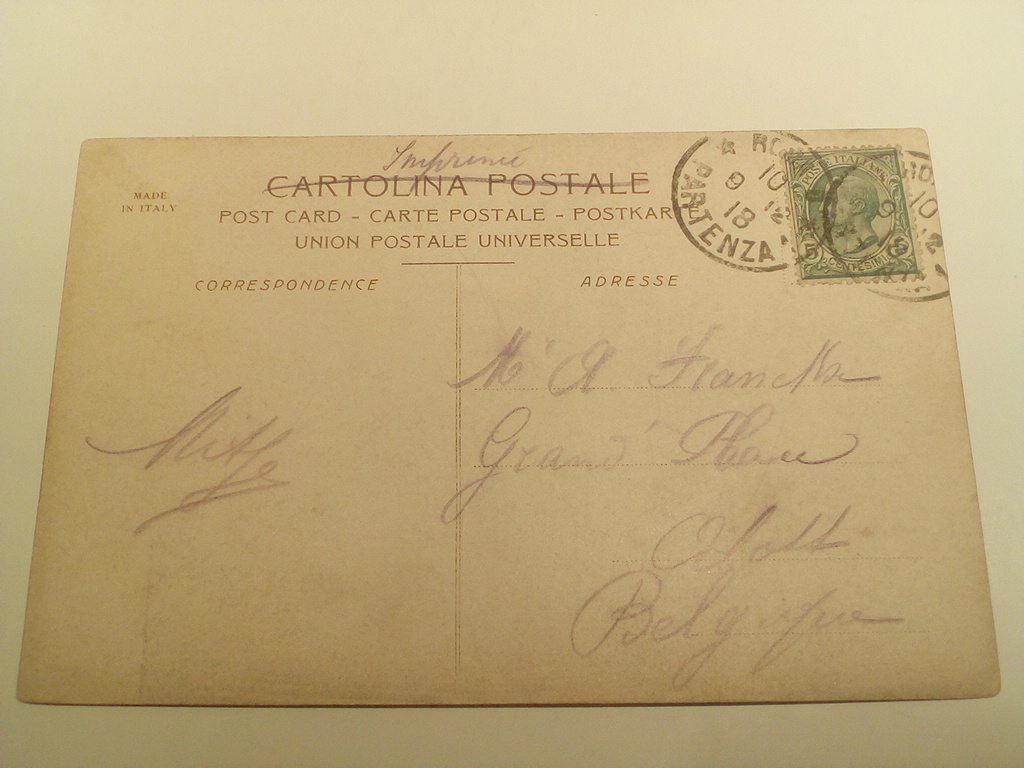 Imprimé
CARTOLINA POSTALE
MADE
IN ITALY
POST CARD - CARTE POSTALE - POSTKAR
UNION POSTALE UNIVERSELLE
CORRESPONDENCE
ADRESSE
RO
10
9 12
18
PARTENZA
POSTE ITALIANE
5 5
CENTESIMI
10
9
Mr A. Franck
Grand' Place
Belgique